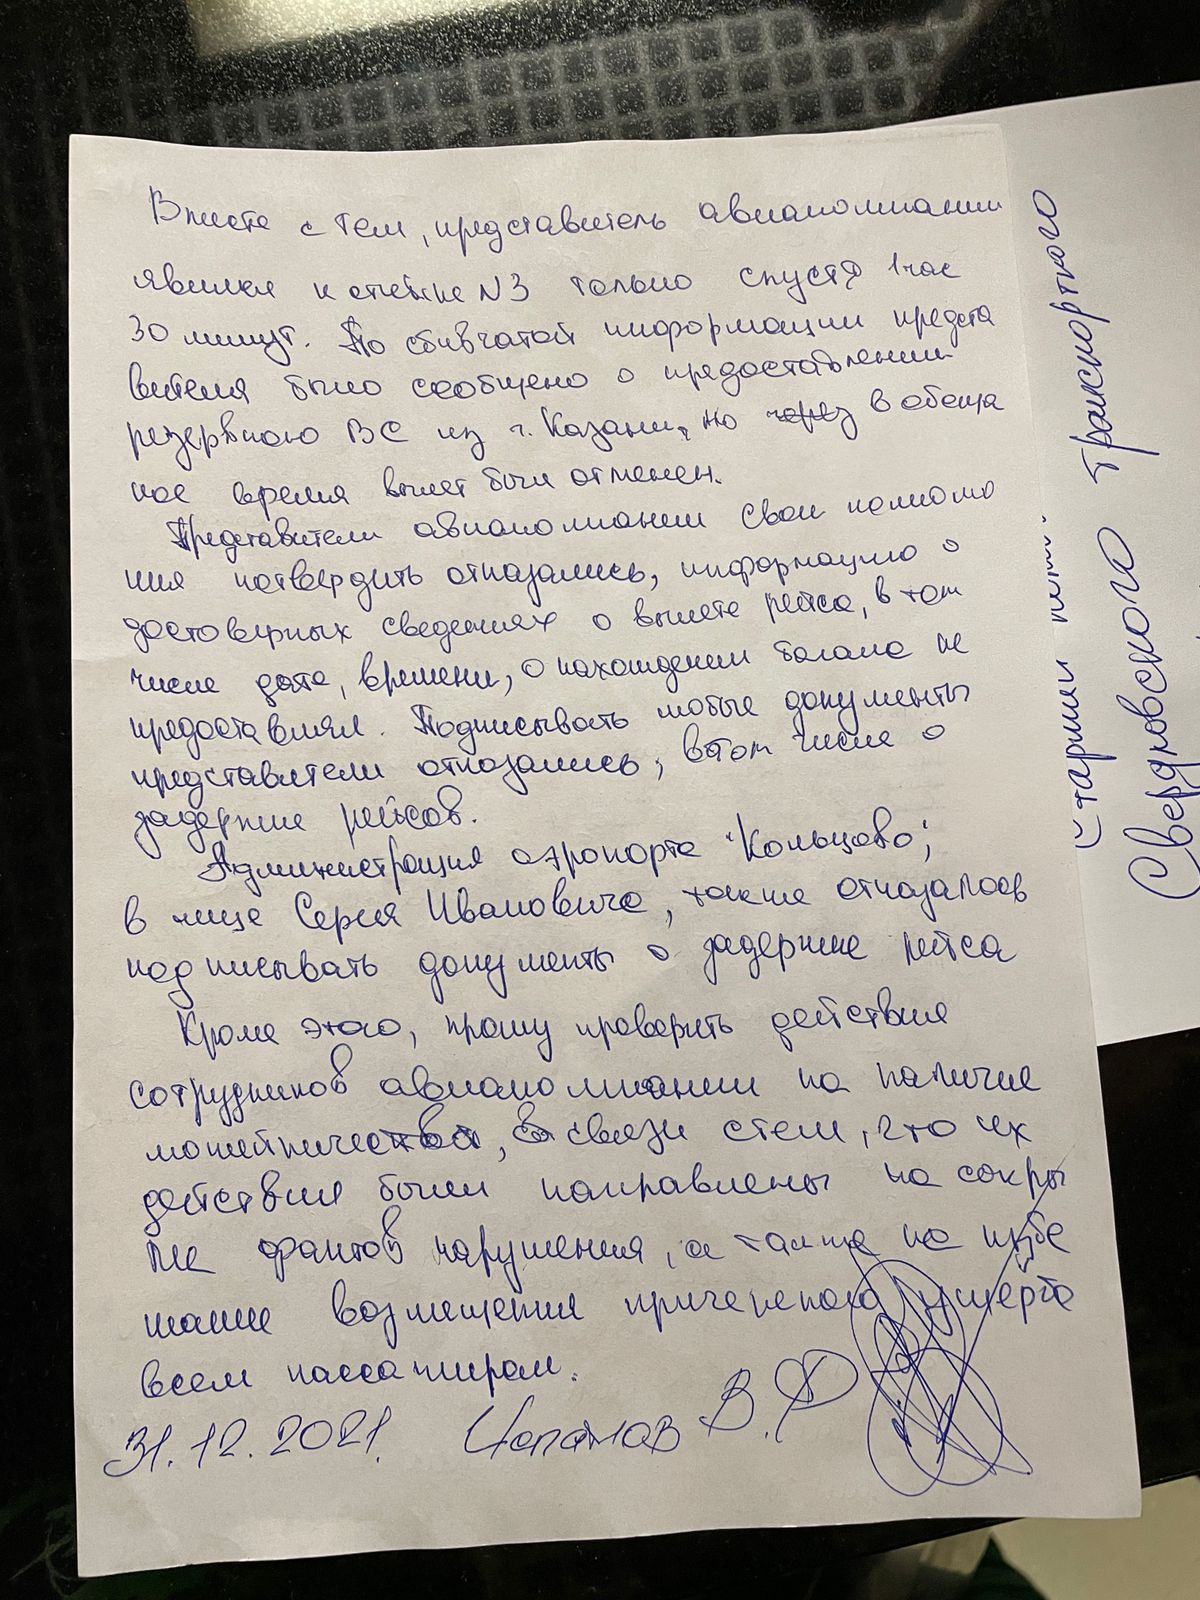 Вместе с тем, представитель авиакомпании
явился к стойке N3 только спустя 1 час
30 минут. По сбивчатой информации предста
вителя было сообщено о предоставлении
резервного ВС из г. Казани, но через в обеща
ное время вылет был отменен.
Представители авиакомпании свои полномо
чия потвердить отказались, информацию о
достоверных сведениях о вылете рейса, в том
числе дата, времени, о нахождении багажа не
предоставлял. Подписывать любые документы
представители отказались, в том числе о
задержке рейсов.
Администрация аэропорта "Кольцово",
в лице Сергея Ивановича, также отказалась
подписывать документы о задержке рейса
Кроме этого, прошу проверить действия
сотрудников авиакомпании на наличие
мошейничества, в связи стем, что их
действия были направлены на сокры
тие фактов нарушения, а также на избе
жание возмещения причененого ущерба
всем пассажирам.
31.12.2021. В.Ф
Свердловского транспортного